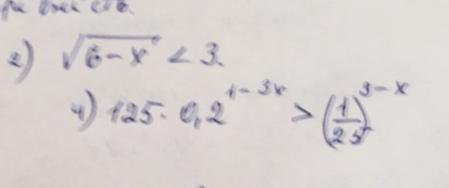 2) √(6-x) < 3.
4) 125 · 0,2^(1-3x) > (1/25)^(3-x)